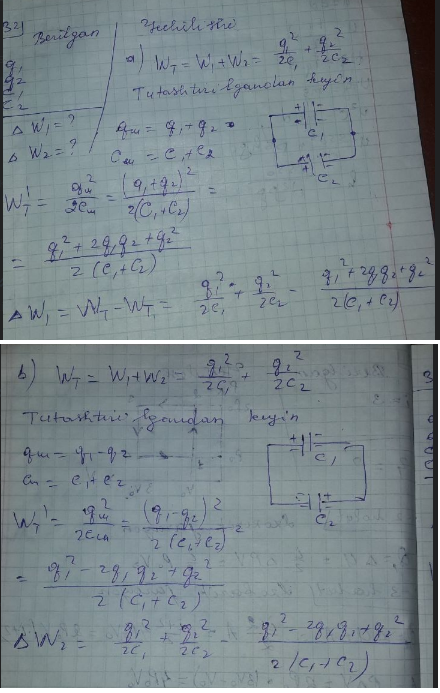 32)
Berilgan
Yechilishi
q₁
q₂
C₁
C₂
ΔW₁ = ?
ΔW₂ = ?
a) W_T = W₁ + W₂ = q₁²/2C₁ + q₂²/2C₂
Tutashtirilgandan keyin
q_m = q₁ + q₂
C_m = C₁ + C₂
+ -
C₁
+ -
C₂
W_T' = q_m²/2C_m = (q₁+q₂)²/2(C₁+C₂) =
= q₁² + 2q₁q₂ + q₂²/2(C₁+C₂)
ΔW₁ = W_T - W_T' = q₁²/2C₁ + q₂²/2C₂ - q₁² + 2q₁q₂ + q₂²/2(C₁+C₂)
b) W_T = W₁ + W₂ = q₁²/2C₁ + q₂²/2C₂
Tutashtirilgandan keyin
q_m = q₁ - q₂
C_m = C₁ + C₂
+ -
C₁
- +
C₂
W_T' = q_m²/2C_m = (q₁-q₂)²/2(C₁+C₂) =
= q₁² - 2q₁q₂ + q₂²/2(C₁+C₂)
ΔW₂ = q₁²/2C₁ + q₂²/2C₂ - q₁² - 2q₁q₁ + q₂²/2(C₁+C₂)